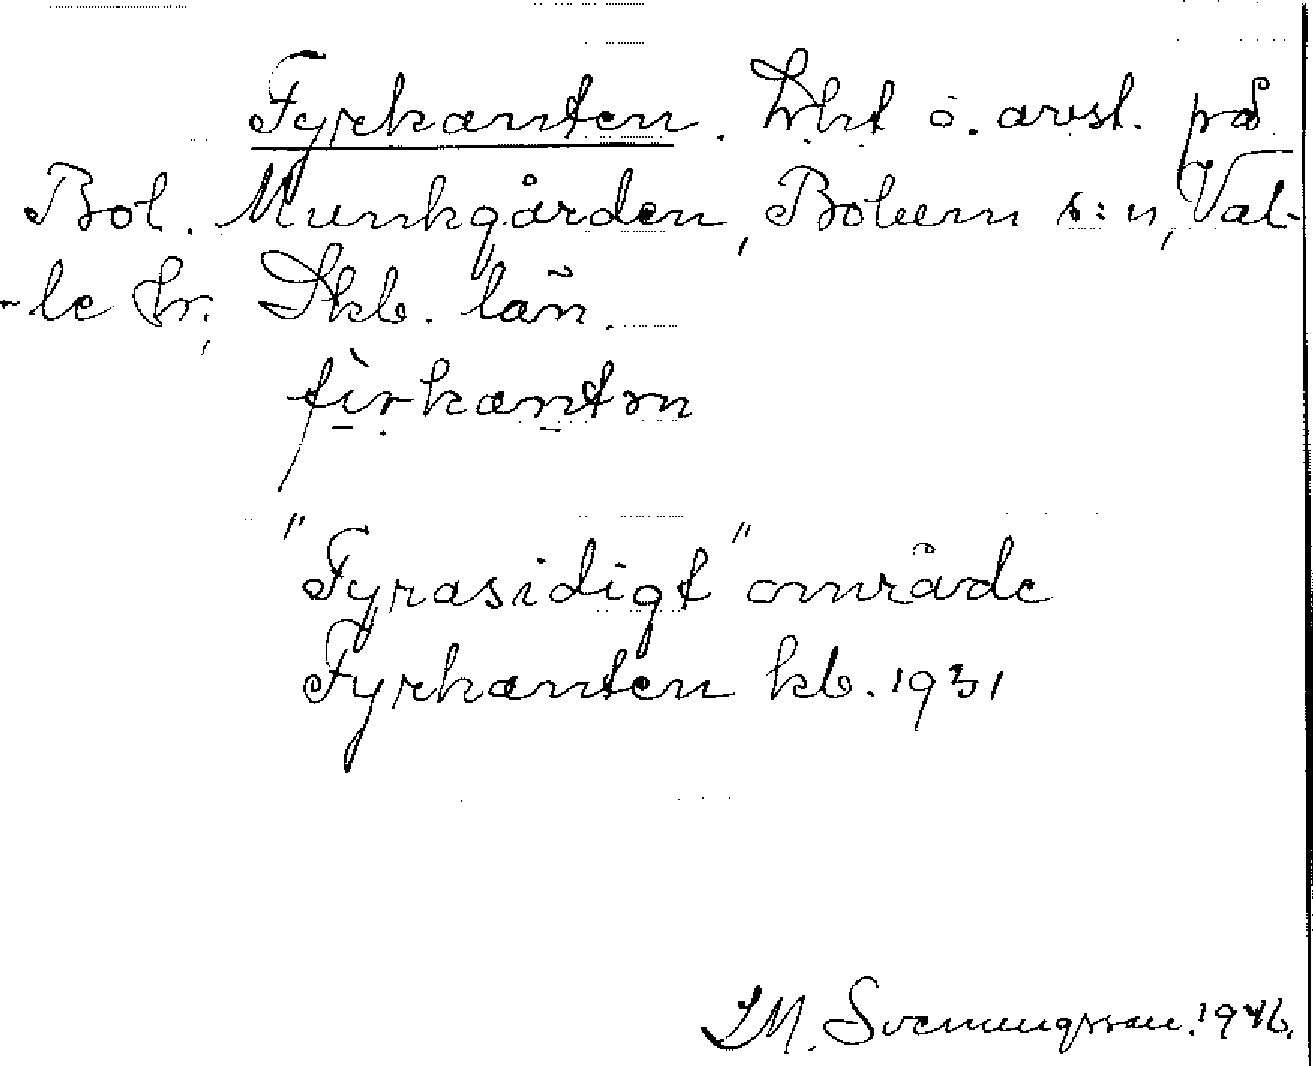 Fyrkanten. Lht o. avsl. på
Bol. Munkgården, Bolum s:n, Val-
-le hr, Skb. län.
fìrkantɷn
"Fyrasidigt" område
Fyrkanten kb. 1931
I.M. Svenungsson. 1946.